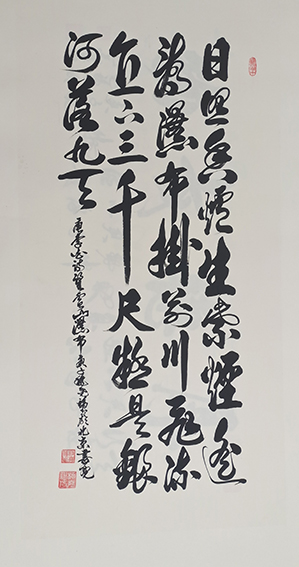 日照香爐生紫煙遥
看瀑布掛前川飛流
直下三千尺疑是銀
河落九天
唐李白詩望廬山瀑布 於北京